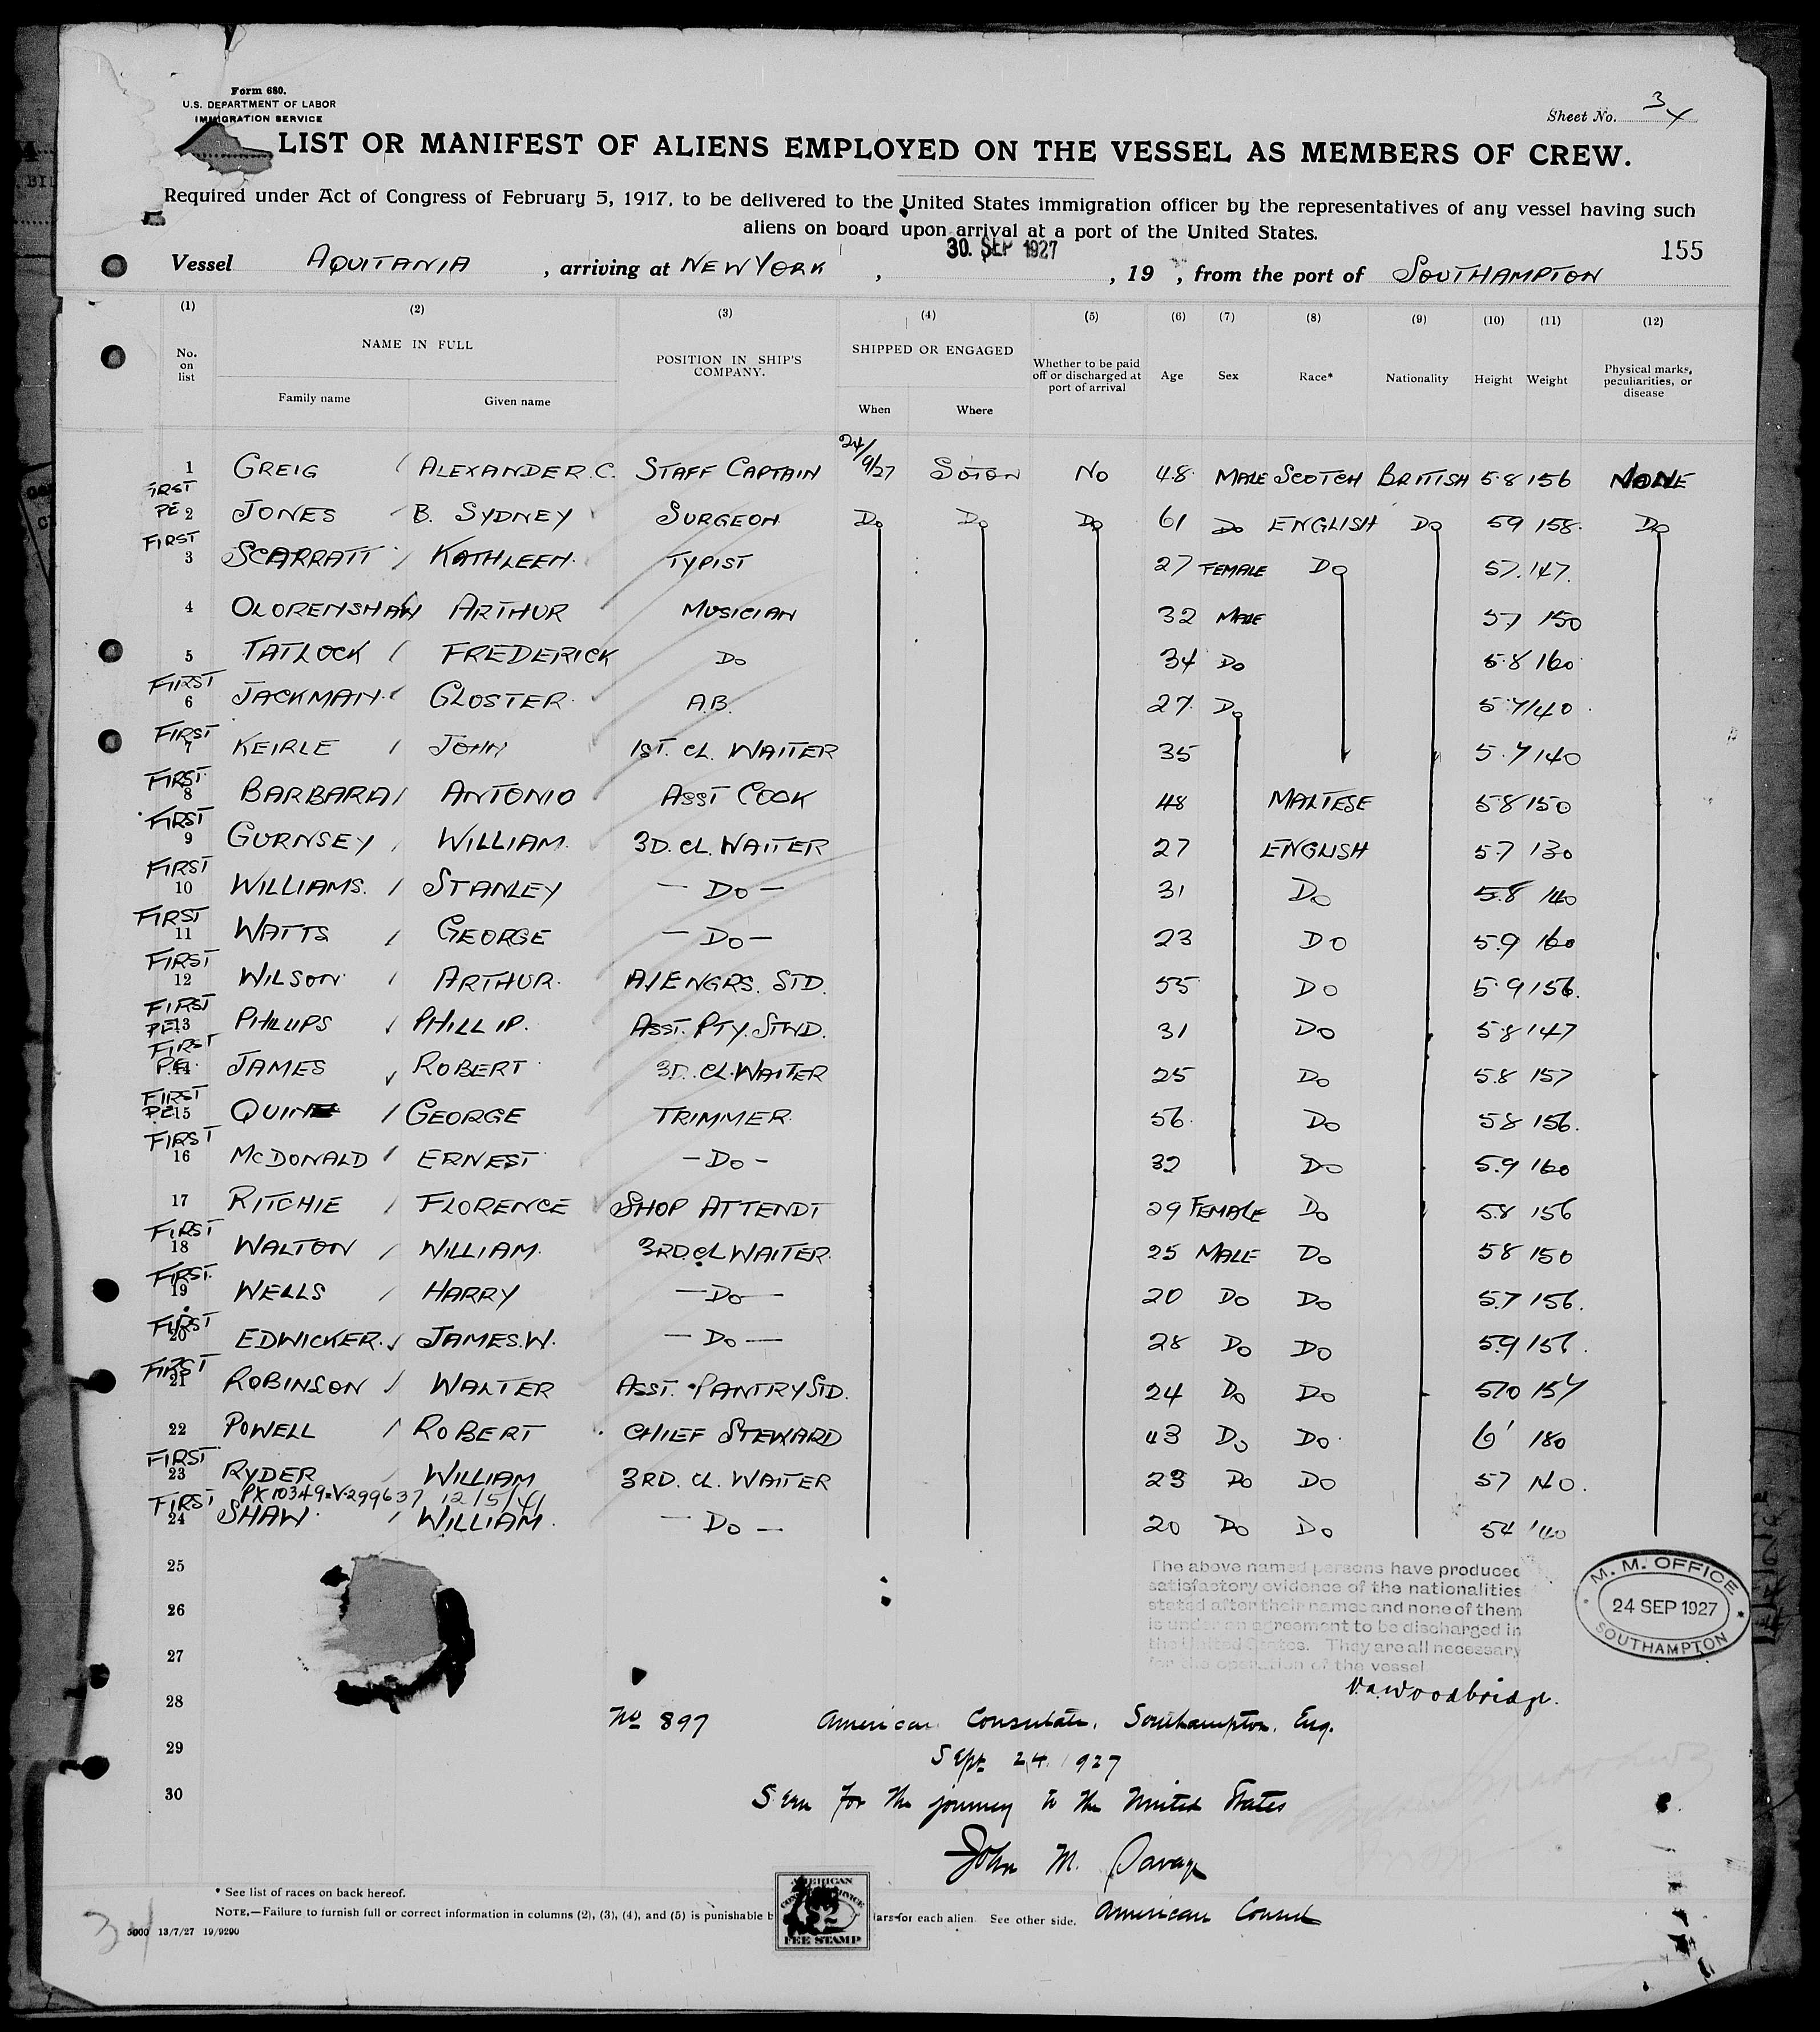 Form 680.
U.S. DEPARTMENT OF LABOR
IMMIGRATION SERVICE
Sheet No. 3
LIST OR MANIFEST OF ALIENS EMPLOYED ON THE VESSEL AS MEMBERS OF CREW.
Required under Act of Congress of February 5, 1917, to be delivered to the United States immigration officer by the representatives of any vessel having such
aliens on board upon arrival at a port of the United States.
155
Vessel AQUITANIA, arriving at NEW YORK, 30. SEP 1927, 19 , from the port of SOUTHAMPTON
(1) (2) (3) (4) (5) (6) (7) (8) (9) (10) (11) (12)
No. on list NAME IN FULL POSITION IN SHIP'S COMPANY. SHIPPED OR ENGAGED Whether to be paid off or discharged at port of arrival Age Sex Race* Nationality Height Weight Physical marks, peculiarities, or disease
Family name Given name When Where
1 GREIG / ALEXANDER.C. STAFF CAPTAIN 24/9/27 SOTON No 48 MALE SCOTCH BRITISH 5.8 156 NONE
FIRST PE 2 JONES B. SYDNEY SURGEON Do Do Do 61 Do ENGLISH Do 59 158 Do
FIRST 3 SCARRATT / KATHLEEN TYPIST 27 FEMALE Do 57. 147.
4 OLORENSHAW ARTHUR MUSICIAN 32 MALE 57 150
5 TATLOCK / FREDERICK Do 34 Do 5.8 160
FIRST 6 JACKMAN GLOSTER A.B. 27 Do 5.7 140
FIRST 7 KEIRLE / JOHN 1ST. CL. WAITER 35 5.7 140
FIRST 8 BARBARA / ANTONIO ASST COOK 48 MALTESE 58 150
FIRST 9 GURNSEY / WILLIAM. 3D. CL. WAITER 27 ENGLISH 57 130
FIRST 10 WILLIAMS. / STANLEY — Do — 31 Do 5.8 140
FIRST 11 WATTS / GEORGE — Do — 23 Do 5.9 160
FIRST 12 WILSON / ARTHUR. A/ENGRS. STD. 55 Do 5.9 156.
FIRST PE 13 PHILLIPS PHILLIP. ASST. PTY. STWD. 31 Do 5.8 147
FIRST P.E. 14 JAMES ROBERT 3D. CL. WAITER 25 Do 5.8 157
FIRST PE 15 QUIN / GEORGE TRIMMER 56. Do 58 156.
FIRST 16 McDONALD / ERNEST — Do — 32 Do 5.9 160
17 RITCHIE / FLORENCE SHOP ATTENDT 29 FEMALE Do 5.8 156
FIRST 18 WALTON / WILLIAM. 3RD. CL WAITER 25 MALE Do 58 150
FIRST. 19 WELLS / HARRY — Do — 20 Do Do 5.7 156.
FIRST 20 EDWICKER. JAMES.W. — Do — 28 Do Do 59 156.
FIRST 21 ROBINSON / WALTER ASST. PANTRY STD. 24 Do Do 510 157
22 POWELL / ROBERT CHIEF STEWARD 43 Do Do 6' 180
FIRST 23 RYDER WILLIAM 3RD. CL. WAITER 23 Do Do 57 140.
PX 10349=V-299637 12/5/41
FIRST 24 SHAW / WILLIAM. — Do — 20 Do Do 54 140
25
26
27
28
29
30
The above named persons have produced
satisfactory evidence of the nationalities
stated after their names and none of them
is under an agreement to be discharged in
the United States. They are all necessary
for the operation of the vessel
M. M. OFFICE
24 SEP 1927
SOUTHAMPTON
Woodbridge.
No 897 American Consulate, Southampton, Eng.
Sept 24 1927
Seen for the journey to the United States
John M. Savage
American Consul
* See list of races on back hereof.
NOTE.—Failure to furnish full or correct information in columns (2), (3), (4), and (5) is punishable b lars for each alien. See other side.
AMERICAN
FEE STAMP
34
5000 13/7/27 19/9290